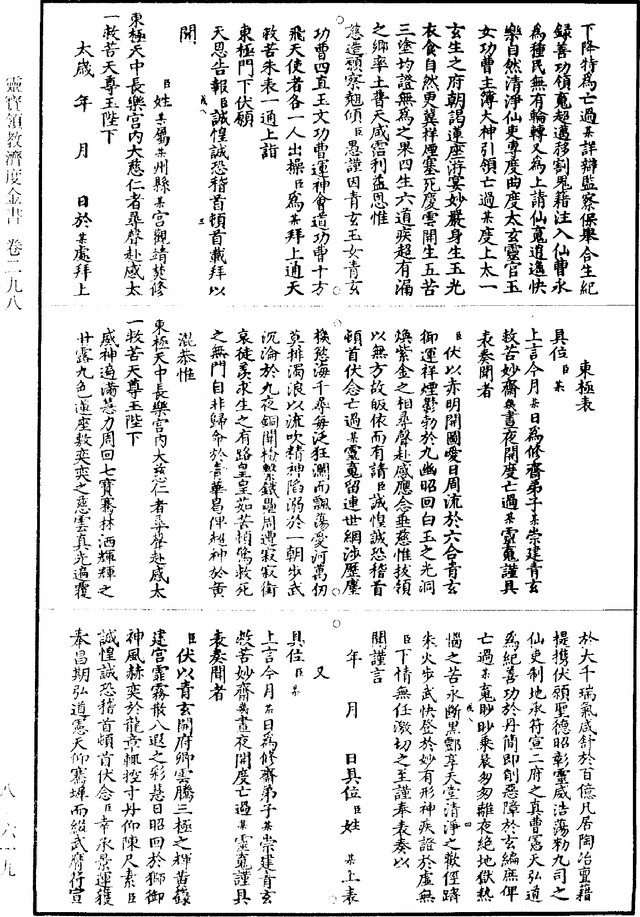 下降特為亡過某詳辯監察保舉合生紀
録善功領䰟超邁移割鬼籍注入仙曹永
為種民無有輪轉又為上請仙䰟逍遥快
樂自然清淨仙吏專度曲度太玄靈官玉
女功曹主簿大神引領亡過某度上太一
玄生之府朝謁蓮座游宴妙嚴身生玉光
衣食自然更冀祥煙塞死慶雲開生五苦
三塗均證無為之果四生六道疾超有漏
之鄉率土普天咸霑利益恩惟
慈造頫察翹傾臣愚謹因青玄玉女青玄
功曹四直玉文功曹運神會道功曹十方
飛天使者各一人出操臣為某拜上通天
救苦朱表一通上詣
東極門下伏願
天恩告報臣誠惶誠恐稽首頓首載拜以
聞
臣姓某屬某州縣某宮觀靖焚修
東極天中長樂宮内大慈仁者尋聲赴感太
一救苦天尊玉陛下
太歲年月日於某處拜上
東極表
具位臣某
上言今月某日為修齋弟子某崇建青玄
救苦妙齋幾晝夜開度亡過某靈䰟謹具
表奏聞者
臣伏以赤明開圖愛日周流於六合青玄
御運祥煙鬱勃於九幽昭回白玉之光洞
煥紫金之相尋聲赴感應念垂慈惟拔領
以無方故皈依而有請臣誠惶誠恐稽首
頓首伏念亡過某靈䰟留連世網涉歷塵
樊慾海千尋每泛狂瀾而飄蕩愛河萬仞
莫排濁浪以流吹精神陷溺於一朝步武
沉淪於九夜銅闈檢繫鐵壘周遭寂寂銜
哀徒羡求生之有路皇皇茹苦頓驚救死
之無門自非歸命於青華曷俾超神於黄
混恭惟
東極天中長樂宮内大慈仁者尋聲赴感太
一救苦天尊玉陛下
威神遍滿慧力周回七寶騫林洒輝輝之
甘露九色蓮座敷奕奕之慈雲真光遍覆
於大千瑞氣咸舒於百億凡居陶冶亶藉
提携伏願聖德昭彰靈威浩蕩勅九司之
仙吏制地承符宣二府之真曹寫天弘道
為紀善功於丹簡即削惡障於玄編庶俾
亡過某䰟眇眇乘衰匆匆離夜絶地獄熱
惱之苦永斷黑酆享天堂清淨之歡俓躋
朱火步武快登於妙有形神疾證於虗無
臣下情無任激切之至謹奉表奏以
聞謹言
年月日具位臣姓某上表
又
具位臣某
上言今月某日為修齋弟子某崇建青玄
救苦妙齋幾晝夜開度亡過某靈䰟謹具
表奏聞者
臣伏以青玄開府卿雲騰三極之輝黄籙
建宮霏霧散八遐之彩慧日昭回於獅御
神風赫奕於龍章輒控寸丹仰陳尺素臣
誠惶誠恐稽首頓首伏念臣幸承景運獲
奉昌期弘道憲天仰騫墀而綴武膺符宣
靈寶領教濟度金書 卷二九八
八·六一九